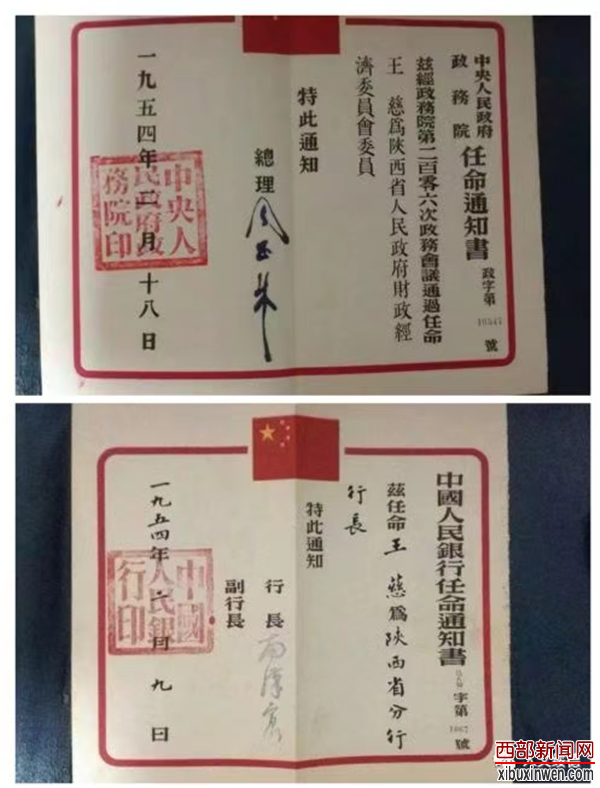 中央人民政府
政務院
任命通知書
政字第
號
茲經政務院第二百零六次政務會議通過任命
王慈爲陝西省人民政府財政經
濟委員會委員
特此通知
總理
周恩來
一九五四年二月十八日
中央人
民政府政
務院印
中國人民銀行任命通知書
字第1067號
茲任命王慈爲陝西省分行
行長
特此通知
行長
南漢宸
副行長
一九五四年六月九日
中國
人民銀
行印
西部新闻网
xibuxinwen.com